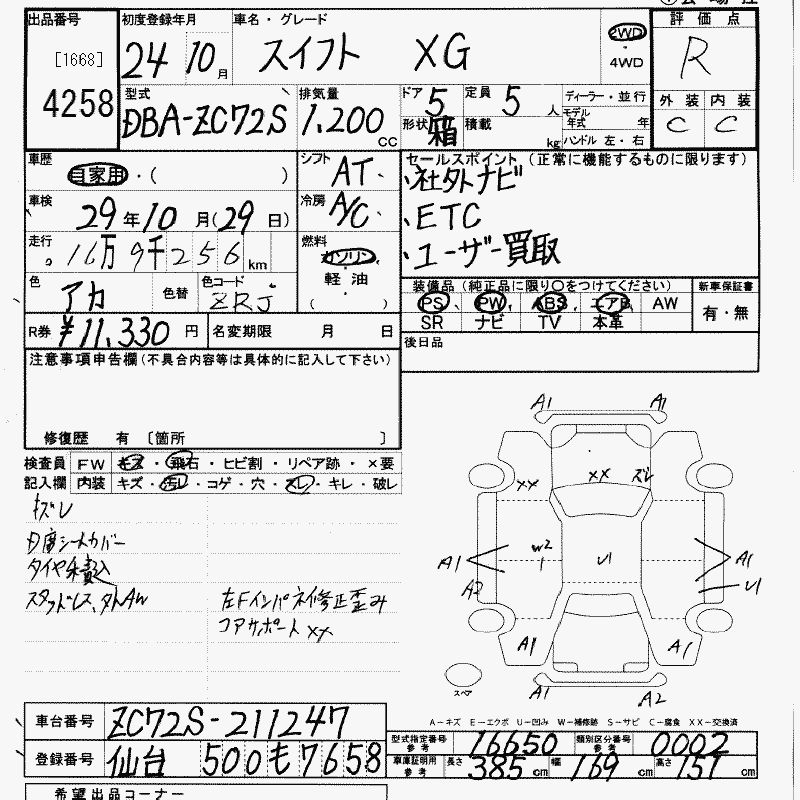 出品番号 初度登録年月 車名・グレード 評価点
[1668] 24 10月 スイフト XG 2WD・4WD R
4258 型式 排気量 ドア 5 定員 5人 ディーラー・並行 外装 内装
DBA-ZC72S 1.200cc 形状 箱 積載 kg モデル年式 年 ハンドル 左・右 C C
車歴 自家用・( ) シフト AT セールスポイント (正常に機能するものに限ります)
、社外ナビ
車検 29年10月(29日) 冷房 A/C ・ETC
走行 16万9千256km 燃料 ガソリン・軽油・( ) ・ユーザー買取
色 アカ 色替 色コード ZRJ 装備品 (純正品に限り○をつけてください) 新車保証書
PS PW ABS エアB AW 有・無
R券 ¥11,330円 名変期限 月 日 SR ナビ TV 本革
注意事項申告欄(不具合内容等は具体的に記入して下さい) 後日品
修復歴 有 〔箇所 〕
検査員 FW キズ・飛石・ヒビ割・リペア跡・×要
記入欄 内装 キズ・汚レ・コゲ・穴・スレ・キレ・破レ
内席シートカバー
タイヤ積込
スタッドレス、外AW 左Fインパネ修正歪み
コアサポートXX
A1 A1
XX XX ズレ
A1 W2 U1 A1
A2 U1
A1 A1
スペア A1 A2
A-キズ E-エクボ U-凹み W-補修跡 S-サビ C-腐食 XX-交換済
車台番号 ZC72S-211247
型式指定番号 参考 16650 類別区分番号 参考 0002
登録番号 仙台 500 も 7658 車庫証明用 参考 長さ 385cm 幅 169cm 高さ 151cm
希望出品コーナー